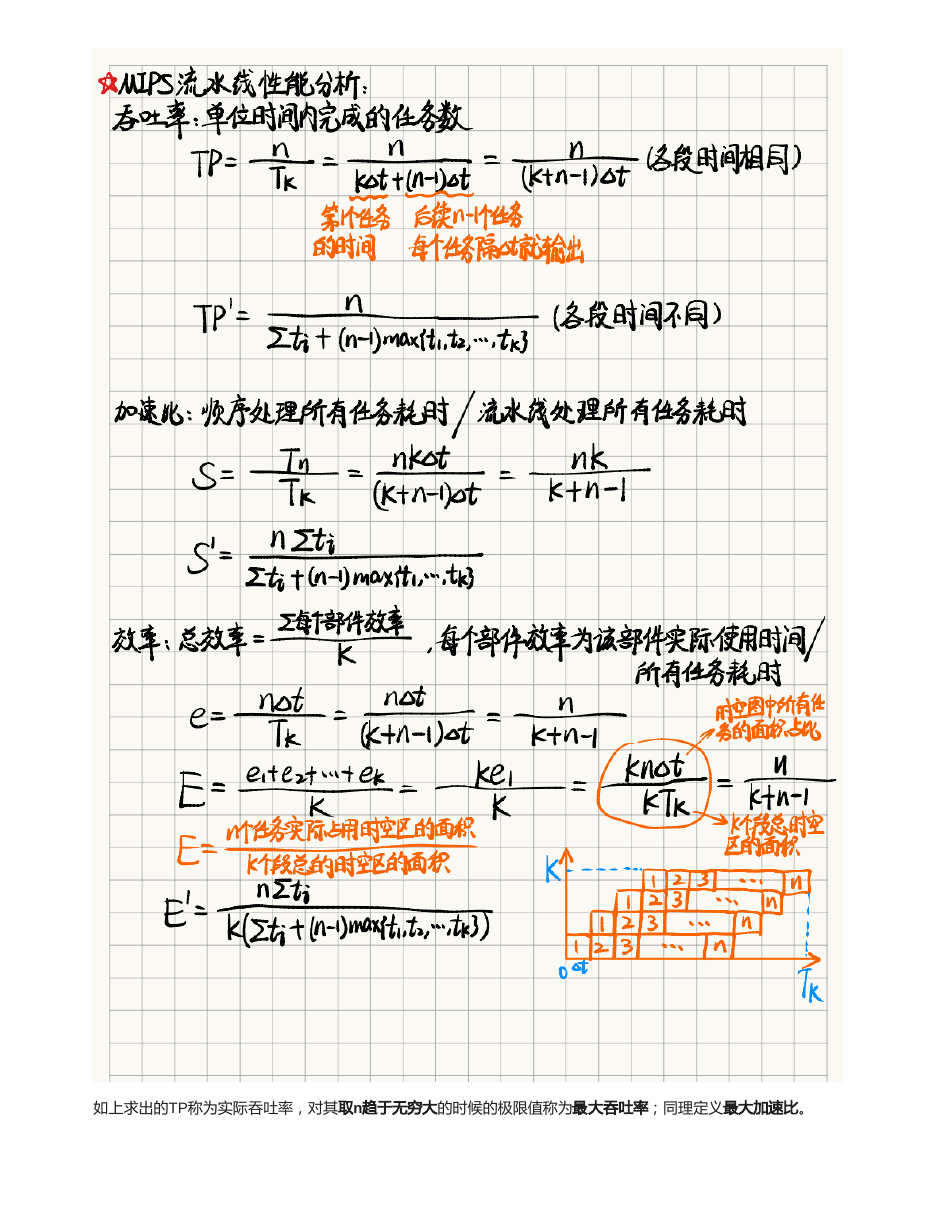 ☆MIPS流水线性能分析:
吞吐率:单位时间内完成的任务数
TP = n/Tk = n/(kΔt+(n-1)Δt) = n/((k+n-1)Δt) (各段时间相同)
第1个任务 后续n-1个任务
的时间 每个任务隔Δt就输出
TP' = n/(Σti+(n-1)max{t1,t2,…,tk}) (各段时间不同)
加速比:顺序处理所有任务耗时/流水线处理所有任务耗时
S = Tn/Tk = nkΔt/((k+n-1)Δt) = nk/(k+n-1)
S' = nΣti/(Σti+(n-1)max{t1,…,tk})
效率:总效率=Σ每个部件效率/K,每个部件效率为该部件实际使用时间/
所有任务耗时
e = nΔt/Tk = nΔt/((k+n-1)Δt) = n/(k+n-1)
时空图中所有任
务的面积占比
E = (e1+e2+…+ek)/K = ke1/K = knΔt/kTk = n/(k+n-1)
K个段总时空
区的面积
E = n个任务实际占用时空区的面积/K个段总的时空区的面积
E' = nΣti/(k(Σti+(n-1)max{t1,t2,…,tk}))
K
1 2 3 … n
1 2 3 … n
1 2 3 … n
1 2 3 … n
0 Δt
Tk
如上求出的TP称为实际吞吐率，对其取n趋于无穷大的时候的极限值称为最大吞吐率；同理定义最大加速比。